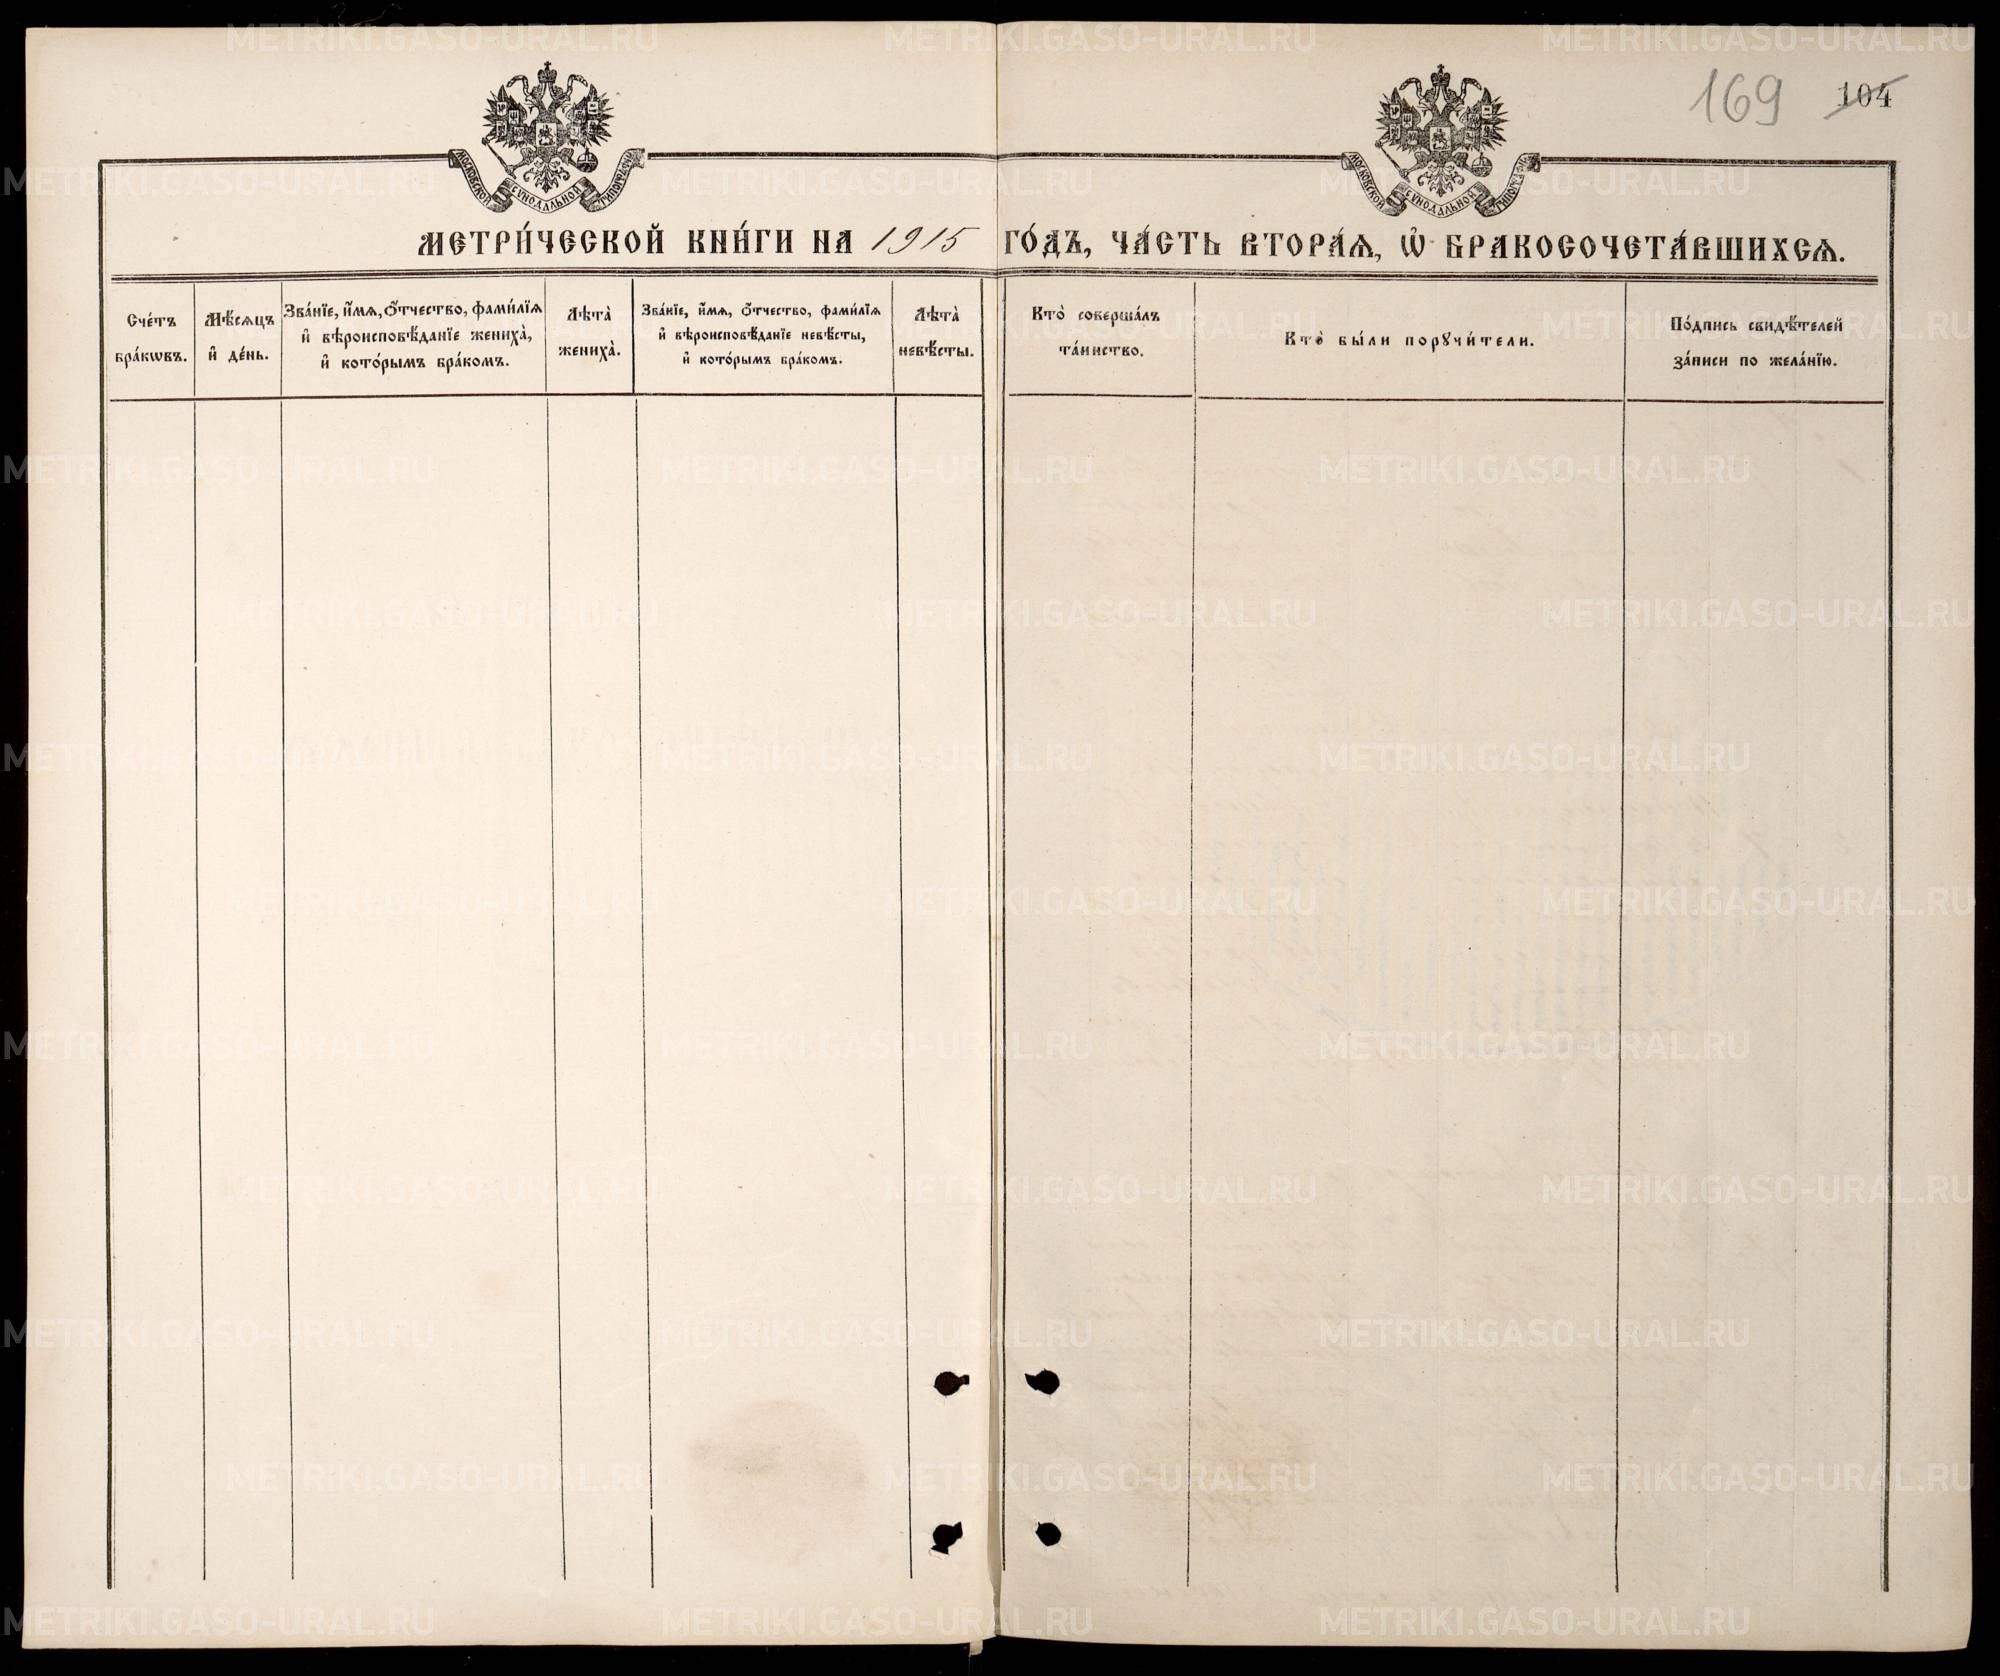 169 104
МОСКОВСКОЙ СѴНОДАЛЬНОЙ ТИПОГРАФІИ
МОСКОВСКОЙ СѴНОДАЛЬНОЙ ТИПОГРАФІИ
МЕТРИ́ЧЕСКОЙ КНИ́ГИ НА 1915 ГО́ДЪ, ЧА́СТЬ ВТОРА́Ѧ, Ѡ҆ БРАКОСОЧЕТА́ВШИХСѦ.
Сче́тъ
бра́кѡвъ.
Мѣ́сѧцъ
и҆ де́нь.
Зва́нїе, и҆́мѧ, ѻ҆́тчество, фами́лїѧ
и҆ вѣроисповѣ́данїе жениха̀,
и҆ кото́рымъ бра́комъ.
Лѣта̀
жениха̀.
Зва́нїе, и҆́мѧ, ѻ҆́тчество, фами́лїѧ
и҆ вѣроисповѣ́данїе невѣ́сты,
и҆ кото́рымъ бра́комъ.
Лѣта̀
невѣ́сты.
Кто̀ соверша́лъ
та́инство.
Кто̀ бы́ли порꙋчи́тели.
По́дпись свидѣ́телей
за́писи по жела́нїю.
METRIKI.GASO-URAL.RU